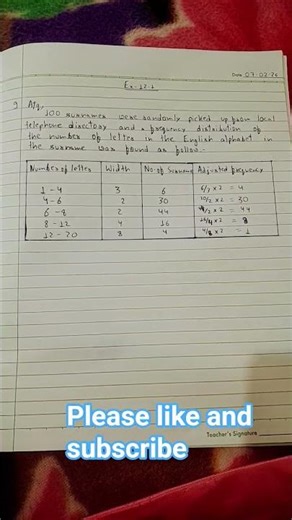 Date 07-02-24
Ex-12.1
9 Ans,
100 surnames were randomly picked up from local
telephone directory and a frequency distribution of
the number of letter in the English alphabet in
the surname was found as follow:-
Number of letter Width No. of Surname Adjusted frequency
1 - 4 3 6 6/3 x 2 = 4
4 - 6 2 30 30/2 x 2 = 30
6 - 8 2 44 44/2 x 2 = 44
8 - 12 4 16 16/4 x 2 = 8
12 - 20 8 4 4/8 x 2 = 1
Please like and
subscribe
Teacher's Signature